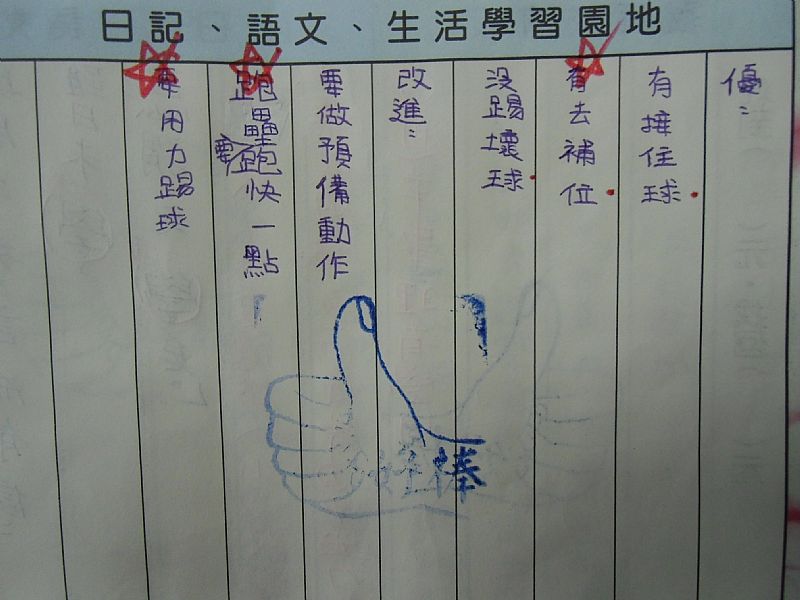 日記、語文、生活學習園地
優：
有接住球
有去補位
沒踢壞球
改進：
要做預備動作
跑壘要跑快一點
要用力踢球
好棒